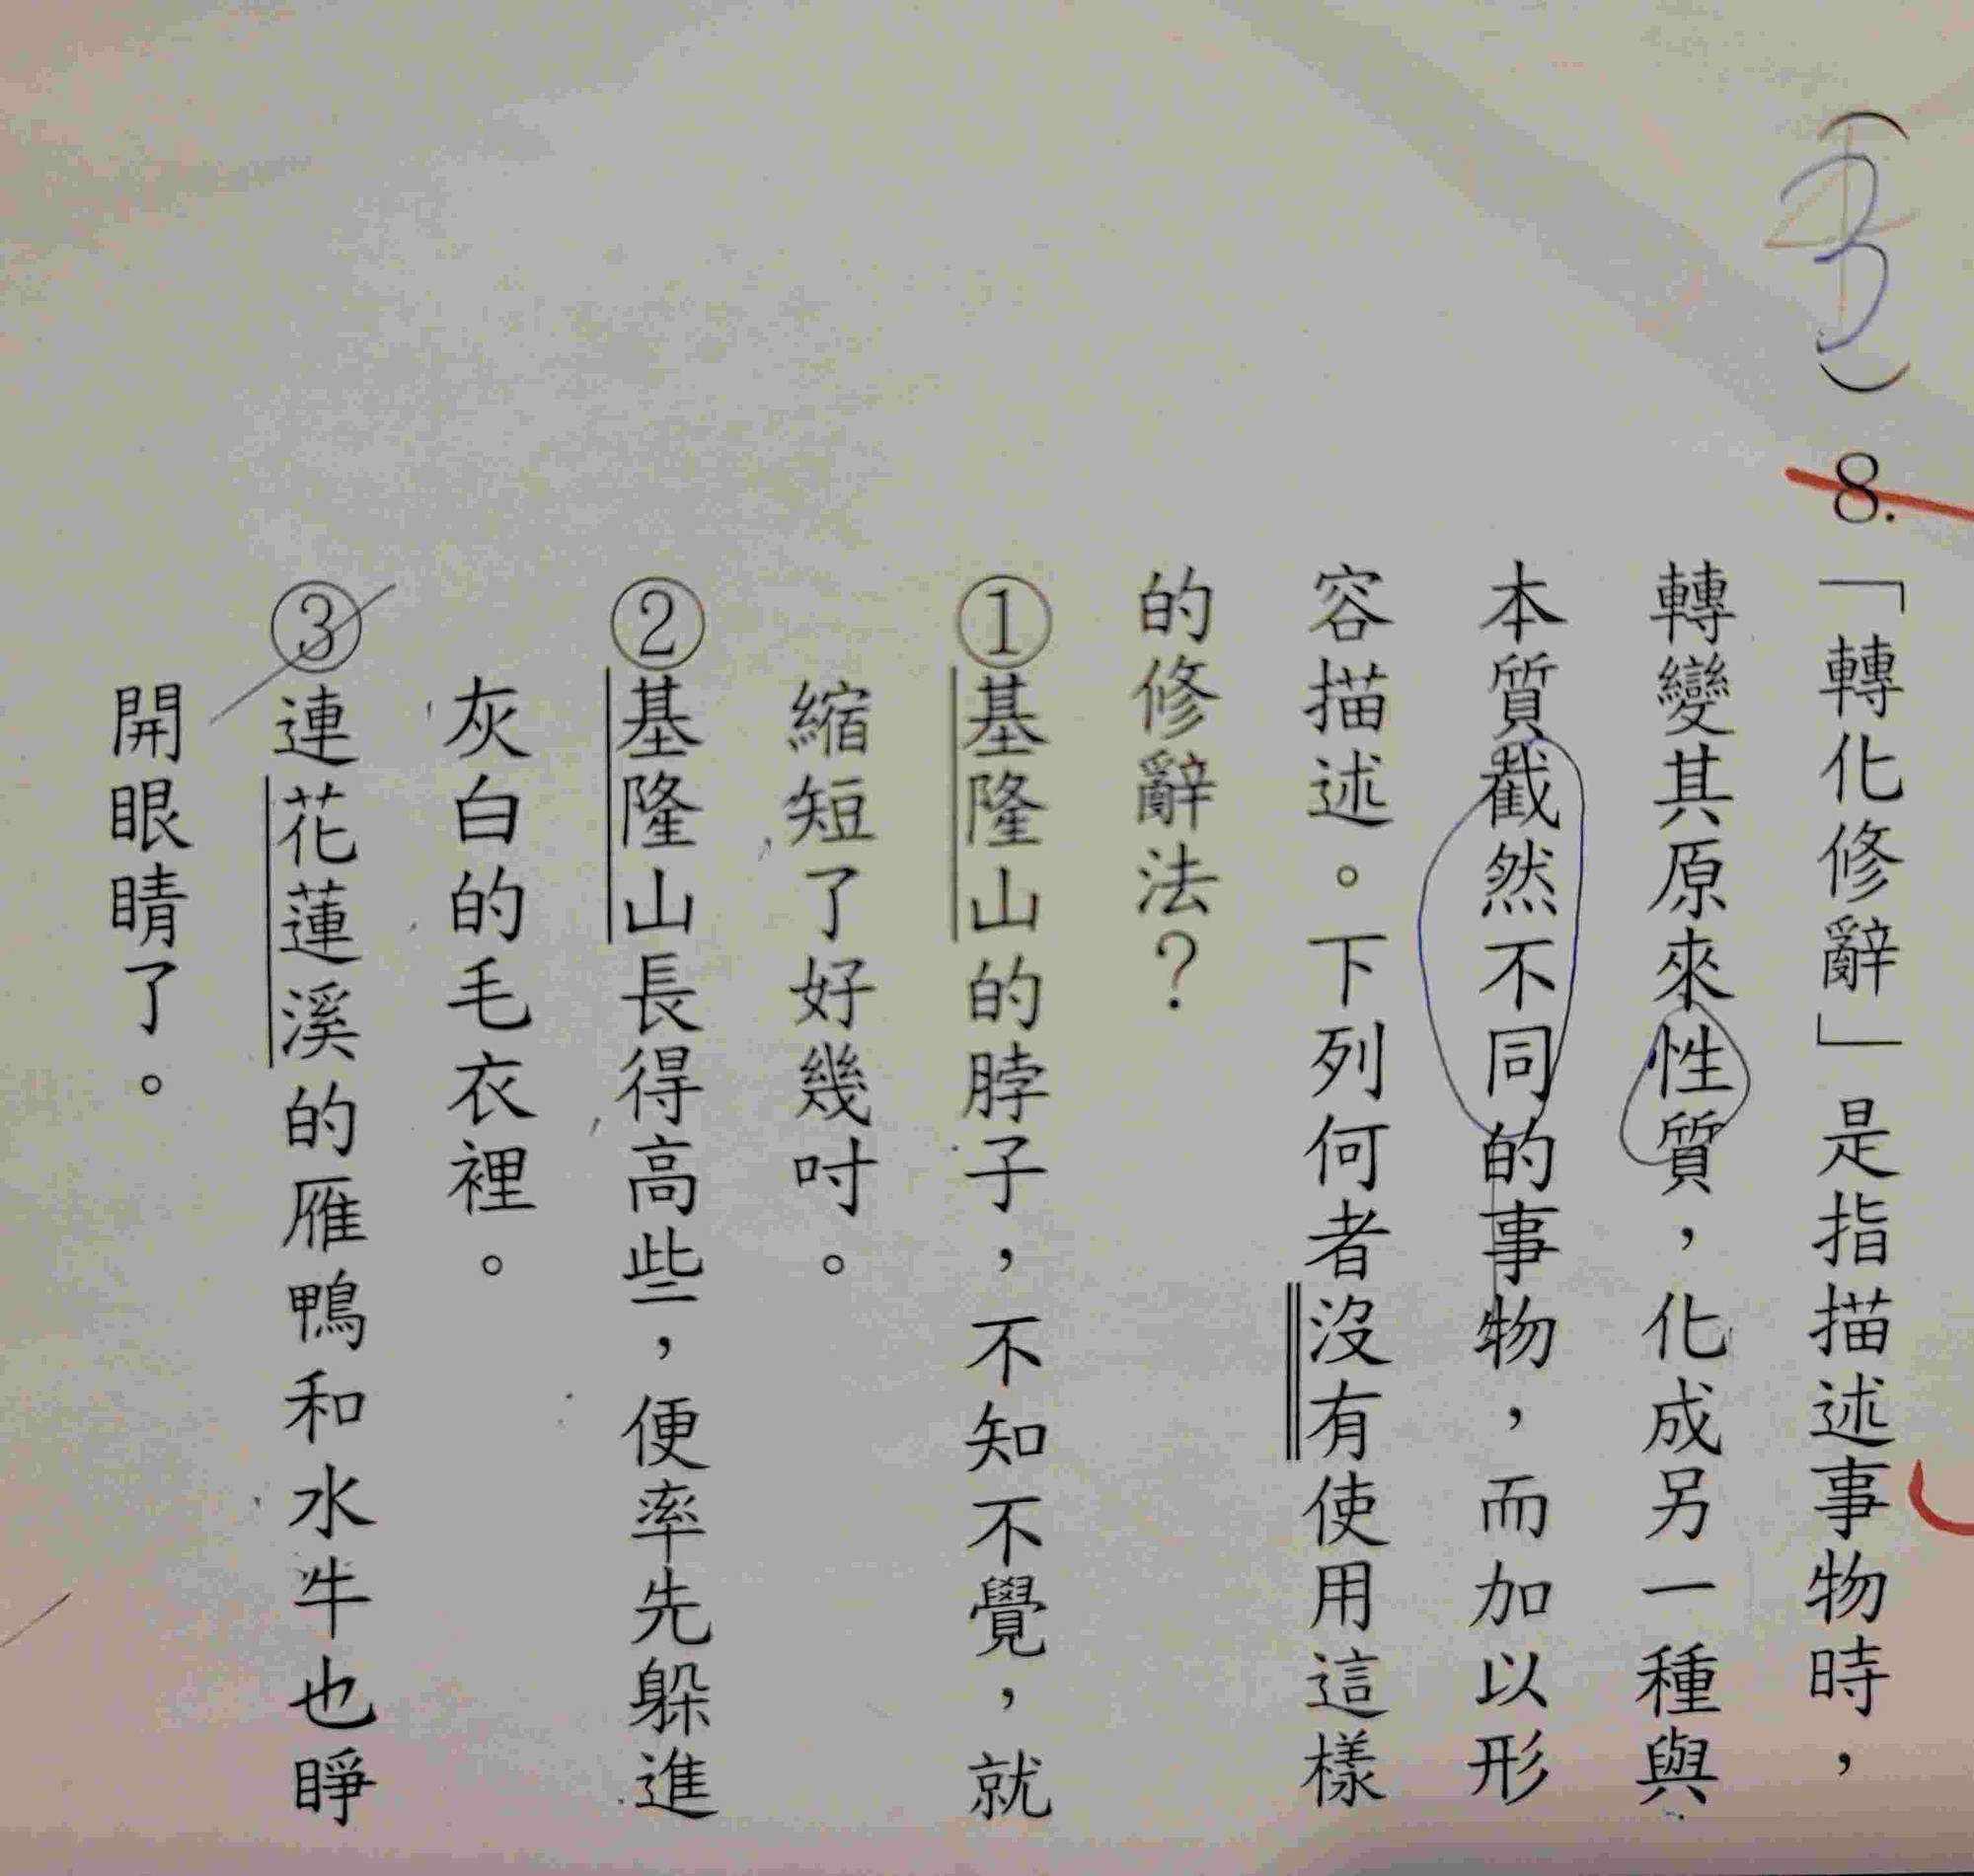 (3) 8.「轉化修辭」是指描述事物時，
轉變其原來性質，化成另一種與
本質截然不同的事物，而加以形
容描述。下列何者沒有使用這樣
的修辭法？
①基隆山的脖子，不知不覺，就
縮短了好幾吋。
②基隆山長得高些，便率先躲進
灰白的毛衣裡。
③連花蓮溪的雁鴨和水牛也睜
開眼睛了。